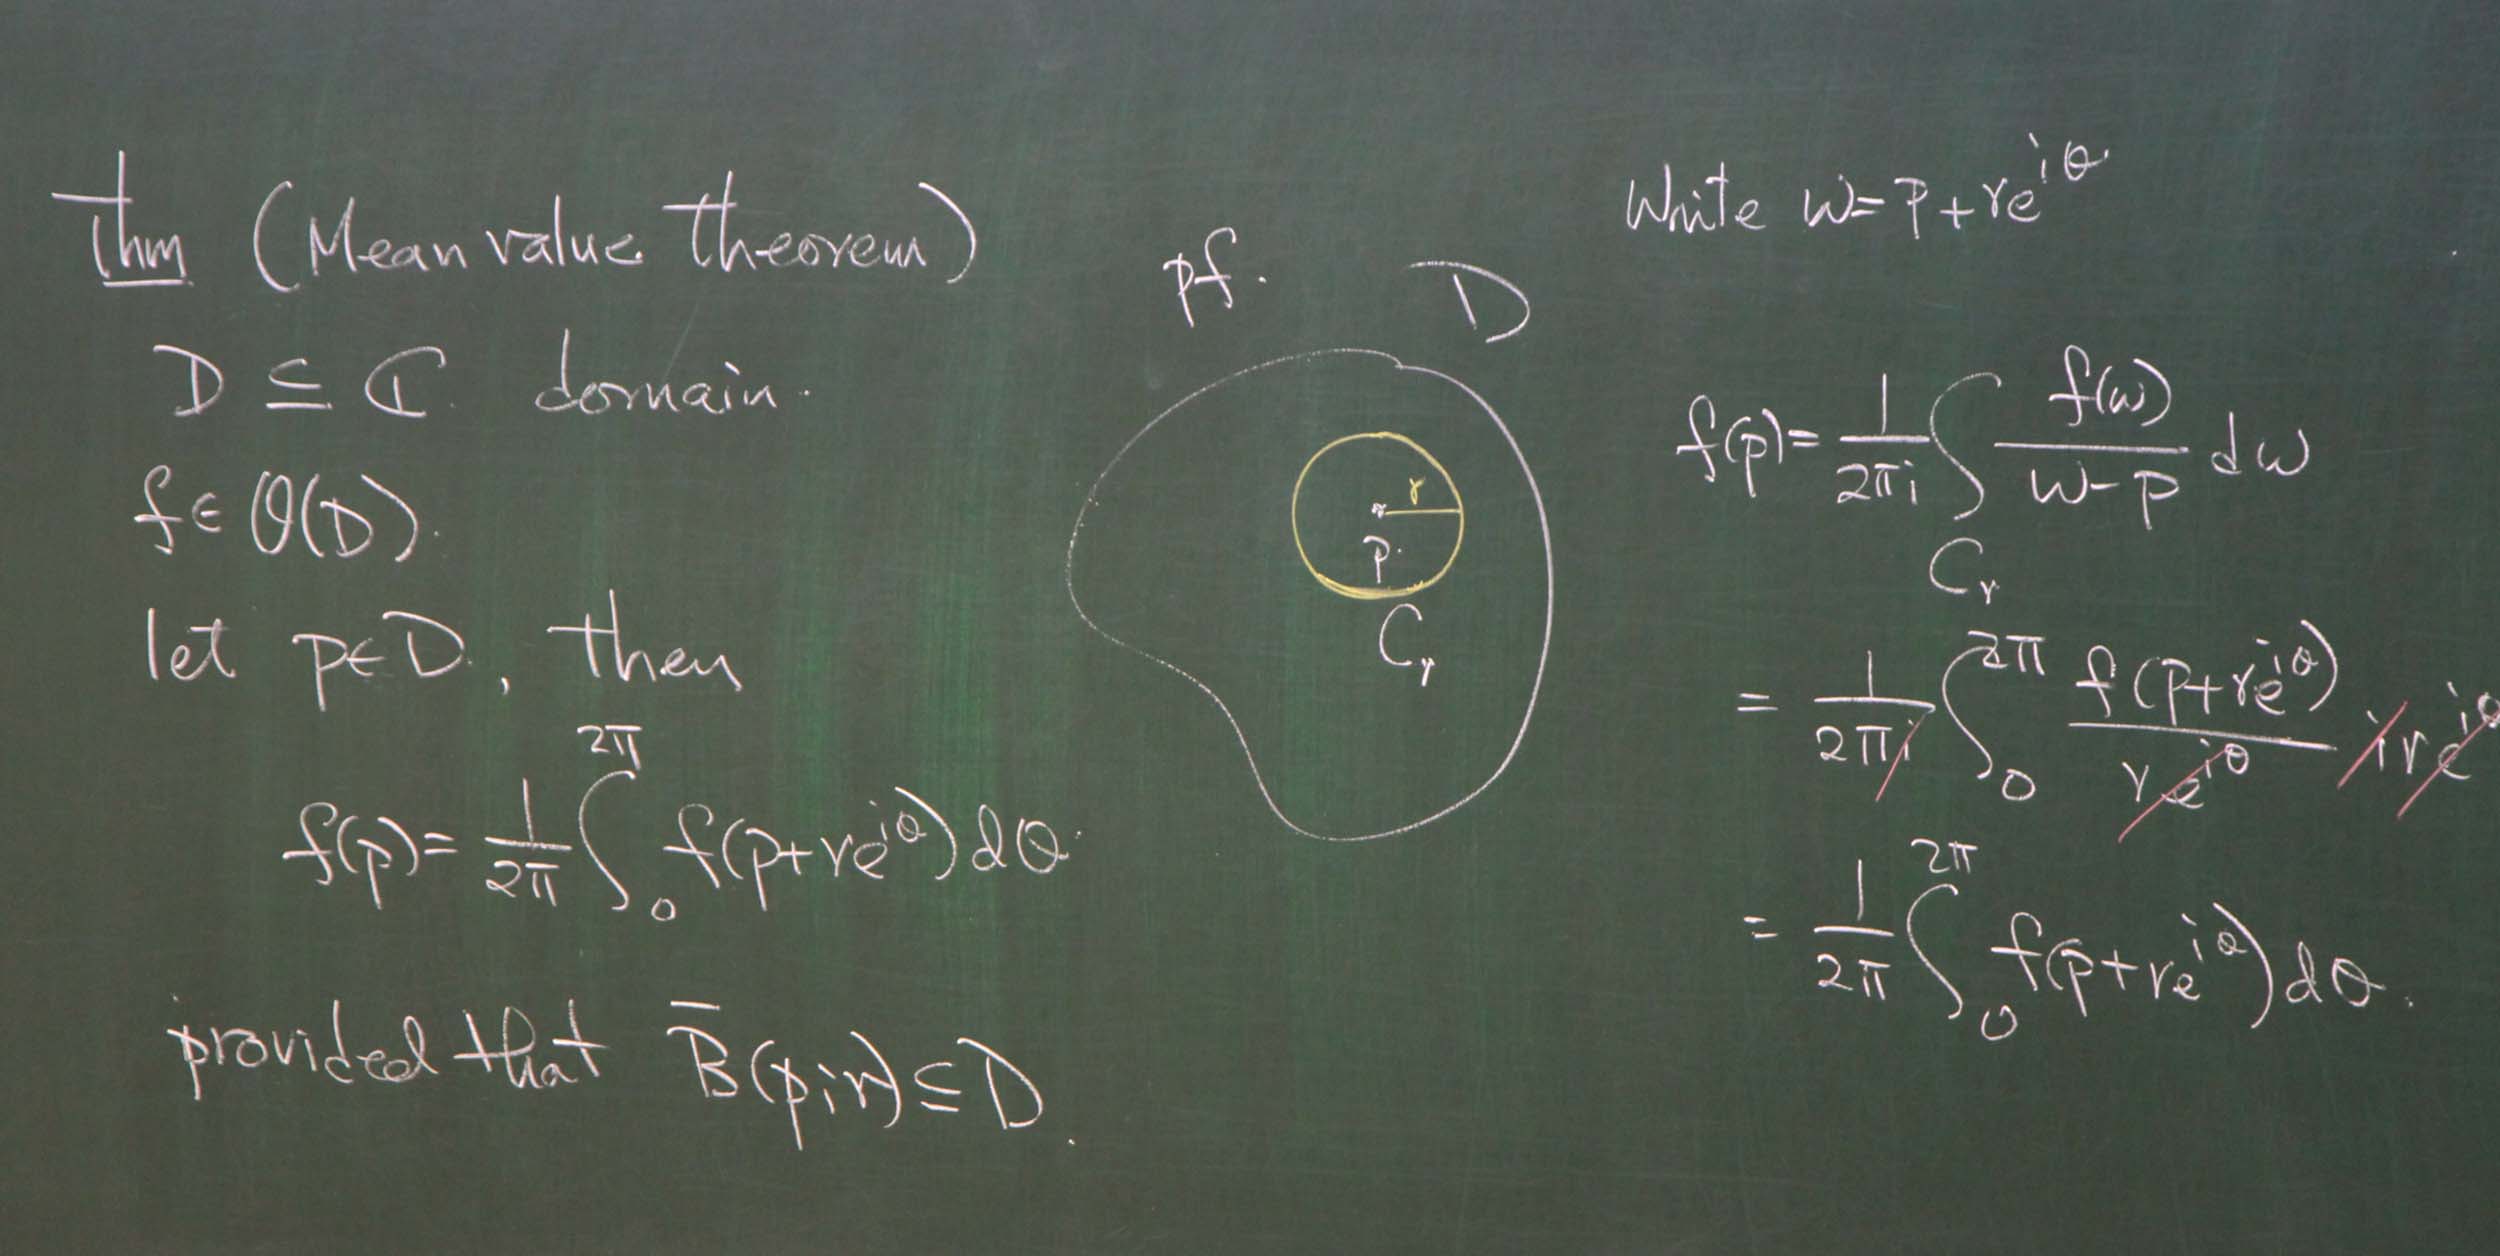 Thm (Mean value theorem)
D ⊆ ℂ. domain.
f ∈ O(D).
let p∈D, then
f(p) = 1/2π ∫₀^2π f(p+re^iθ) dθ.
provided that B̄(p;r) ⊆ D.
pf.
D
r
p.
C_r
Write w = p + re^iθ.
f(p) = 1/2πi ∫_C_r f(w)/(w-p) dw
= 1/2πi ∫₀^2π f(p+re^iθ)/(re^iθ) ire^iθ
= 1/2π ∫₀^2π f(p+re^iθ) dθ.